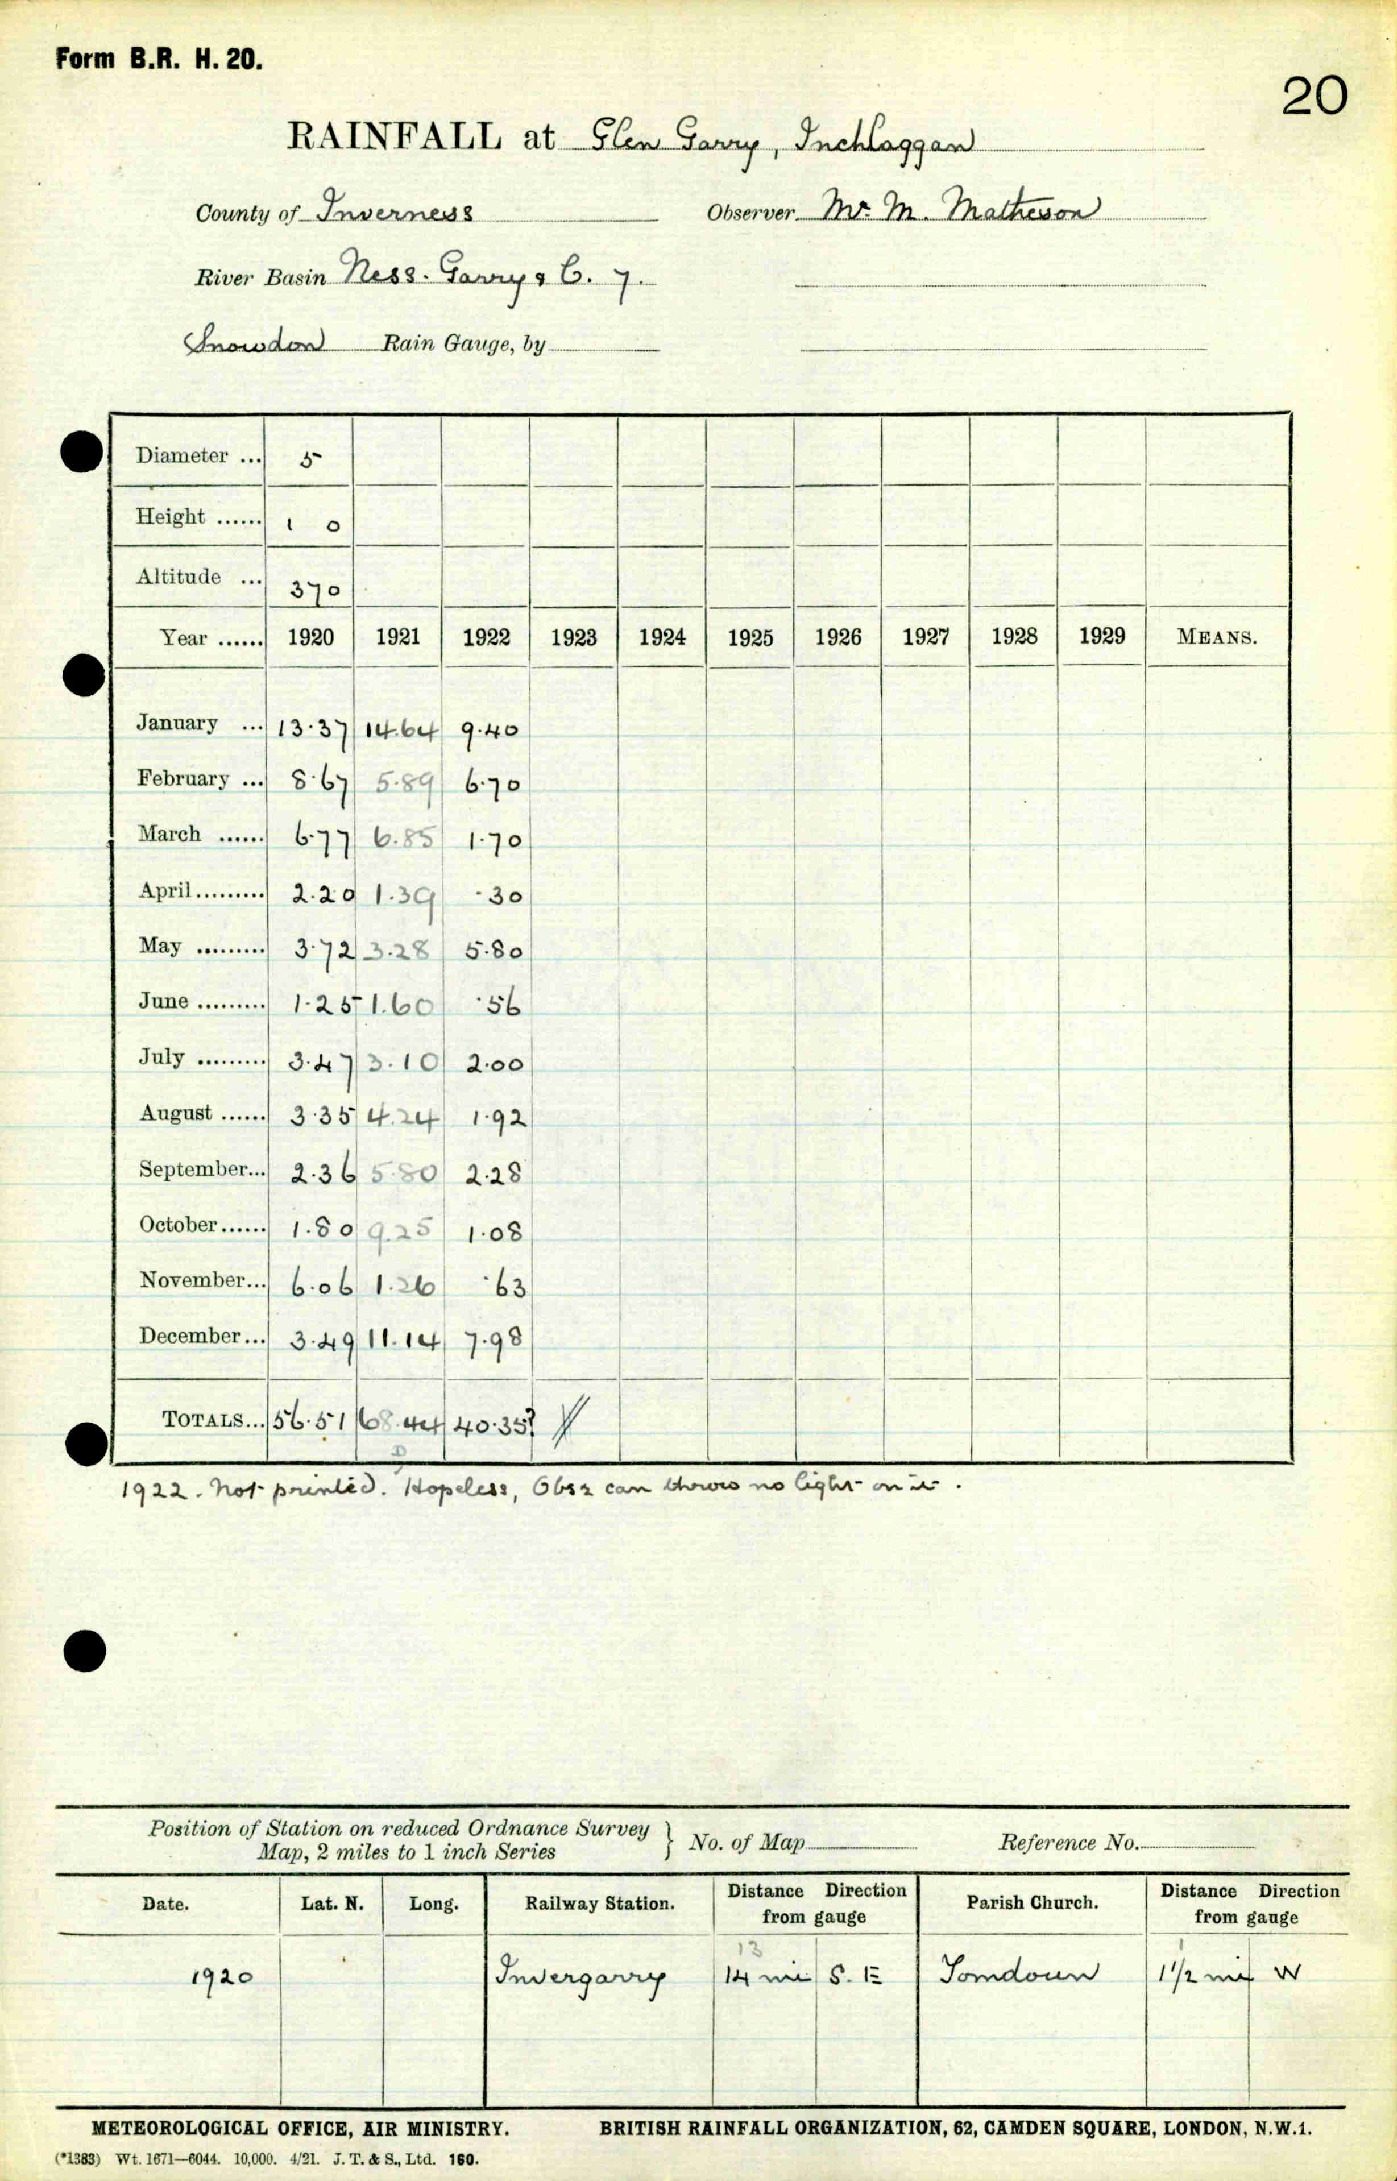 Form B.R. H. 20.
20
RAINFALL at Glen Garry, Inchlaggan
County of Inverness Observer Mr. M. Matheson
River Basin Ness. Garry & C. 7.
Snowdon Rain Gauge, by
Diameter ... 5
Height ...... 1 0
Altitude ... 370
Year ...... 1920 1921 1922 1923 1924 1925 1926 1927 1928 1929 MEANS.
January ... 13.37 14.64 9.40
February ... 8.67 5.89 6.70
March ...... 6.77 6.85 1.70
April ......... 2.20 1.39 .30
May ......... 3.72 3.28 5.80
June ......... 1.25 1.60 .56
July ......... 3.47 3.10 2.00
August ...... 3.35 4.24 1.92
September... 2.36 5.80 2.28
October...... 1.80 9.25 1.08
November... 6.06 1.26 .63
December... 3.49 11.14 7.98
TOTALS... 56.51 68.44 40.35?
1922. Not printed. Hopeless, Obsr can throw no light on it.
Position of Station on reduced Ordnance Survey
Map, 2 miles to 1 inch Series } No. of Map Reference No.
Date. Lat. N. Long. Railway Station. Distance Direction from gauge Parish Church. Distance Direction from gauge
13
1920 Invergarry 14 mi S. E Tomdoun 1 1/2 mi W
METEOROLOGICAL OFFICE, AIR MINISTRY. BRITISH RAINFALL ORGANIZATION, 62, CAMDEN SQUARE, LONDON, N.W.1.
(*1383) Wt. 1671—6044. 10,000. 4/21. J. T. & S., Ltd. 160.